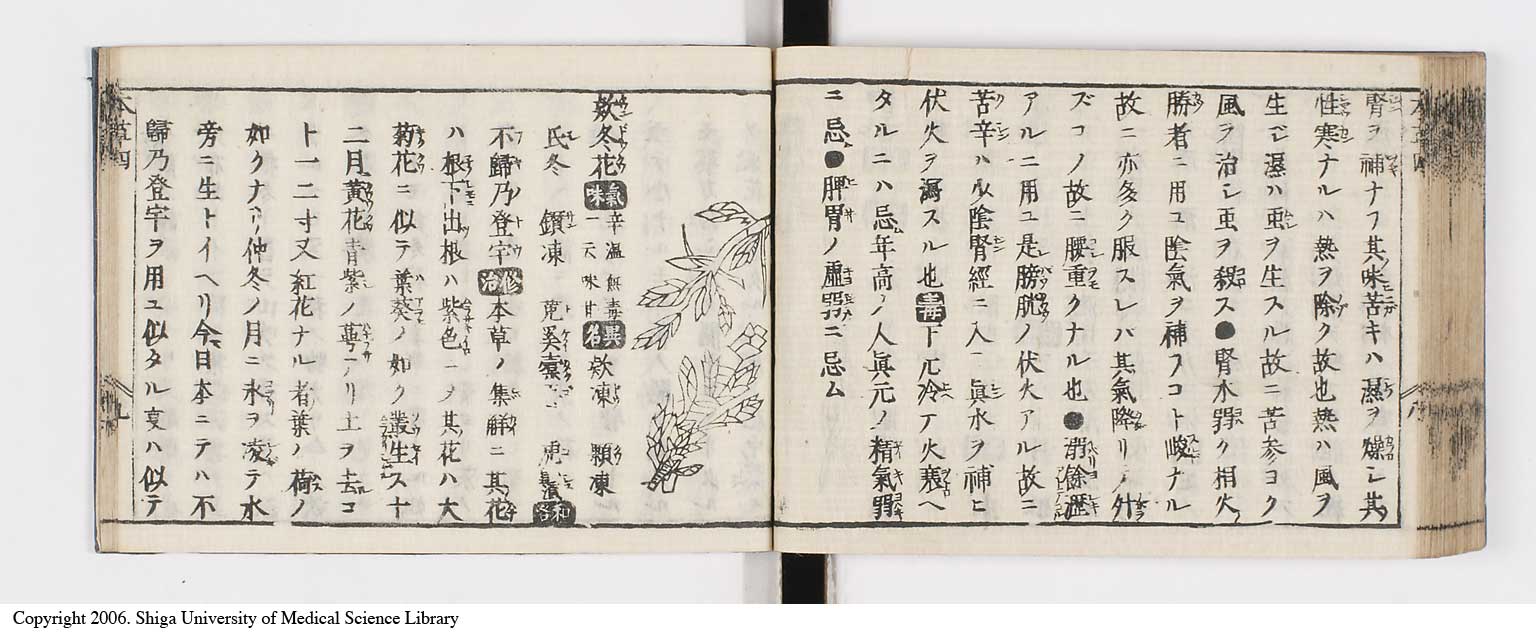 腎ヲ補ナフ其味苦キハ濕ヲ燥シ其
性寒ナルハ熱ヲ除ク故也熱ハ風ヲ
生シ濕ハ虫ヲ生スル故ニ苦参ヨク
風ヲ治シ虫ヲ殺ス●腎水弱ク相火
勝者ニ用ユ陰氣ヲ補フコト峻ナル
故ニ亦多ク服スレバ其氣降リノ外
ズコノ故ニ腰重クナル也●消餘瀝
アルニ用ユ是膀胱ノ伏火アル故ニ
苦辛ハ少陰腎經ニ入眞水ヲ補ヒ
伏火ヲ瀉スル也毒下元冷テ火衰ヘ
タルニハ忌年高ノ人眞元ノ精氣弱
ニ忌●脾胃ノ虚弱ニ忌ム
欵冬花 氣味 辛温無毒一云味甘 異名 欵凍 顆凍
氏冬 鑽凍 菟奚 橐 虎 和名
不歸乃登宇 修治 本草ノ集解ニ其花
ハ根下出根ハ紫色ニヲ其花ハ大
菊花ニ似テ葉葵ノ如ク叢生ス十
二月黄花青紫ノ萼アリ土ヲ去コ
ト一二寸又紅花ナル者葉ノ荷ノ
如クナアリ仲冬ノ月ニ氷ヲ凌テ水
旁ニ生トイヘリ今日本ニテハ不
歸乃登宇ヲ用ユ似タル叓ハ似テ
本草四
九
Copyright 2006. Shiga University of Medical Science Library